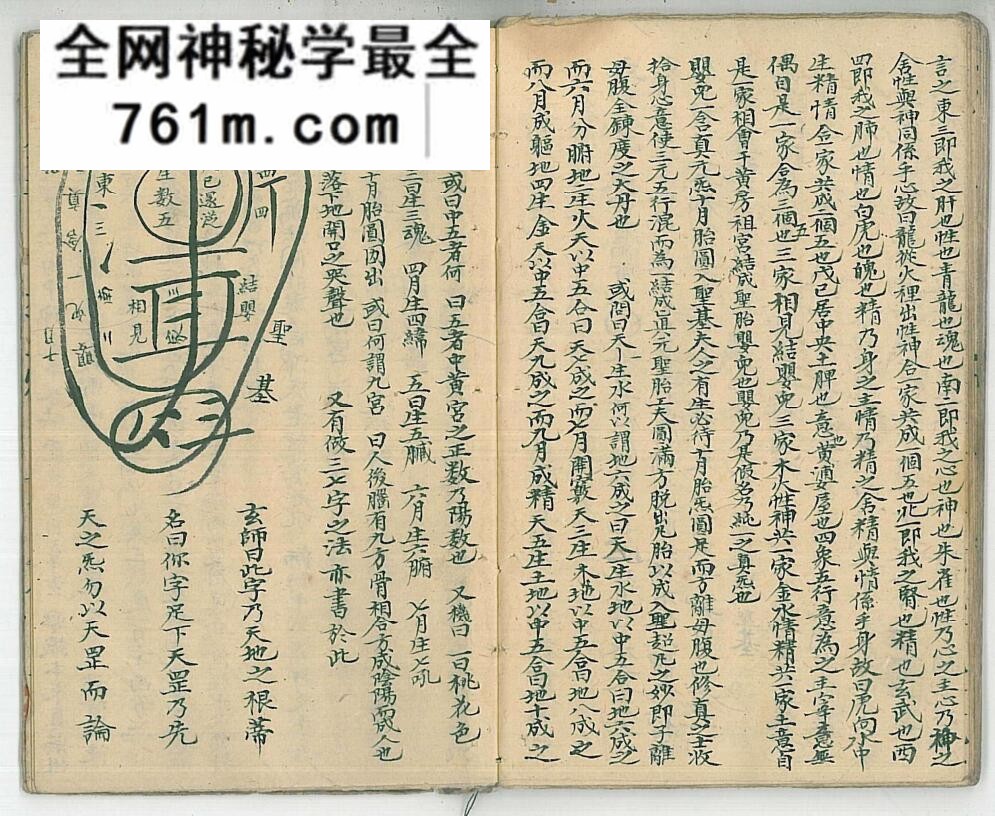 全网神秘学最全
761m.com
言之東三即我之肝也性也青龍也魂也南二即我之心也神也朱雀也性乃心之主心乃神之
舍性與神同係乎心故曰龍從火裡出性神合一家共成一個五也北一即我之腎也精也玄武也西
四即我之肺也情也白虎也魄也精乃身之主情乃精之舍精與情係乎身故曰虎向水中
生精情合一家共成一個五也戊己居中央土脾也意也黃婆屋也四象五行意為之主宰意無
偶自是一家合為三個五也三家相見結嬰兒三家木火性神共一家金水情精共一家土意自
是一家相會于黃房祖宮結成聖胎嬰兒也嬰兒乃是假名乃純一之真炁也
嬰兒一含真九炁十月胎圓入聖基夫人之有生必待十月胎炁圓足而子離母腹也修真之士收
拾身心意使三元五行混而為一結成真元聖胎工夫圓滿方脫出凡胎以成入聖超凡之妙即子離
母腹全鍊度之大丹也 或問曰天一生水何以謂地六成之曰天一生水地以中五合曰地六成之
而六月分腑地二生火天以中五合曰天七成之而七月開竅天三生木地以中五合曰地八成之
而八月成軀地四生金天以中五合曰天九成之而九月成精天五生土地以中五合曰地十成之
或曰中五者何 曰五者中黃宮之正數乃陽數也 又機曰 一曰桃花色
三月生三魂 四月生四緯 五月生五臟 六月生六腑 七月生七孔
十月胎圓因出 或曰何謂九宮 曰人後腦有九方骨相合方成陰陽而成人也
落下地開口之哭聲也 又有做三七字之法亦書於此
東一三
生數五
己還從
四
結嬰
相見
聖
基
玄師曰此字乃天地之根蒂
名曰你字足下天罡乃先
天之炁勿以天罡而論